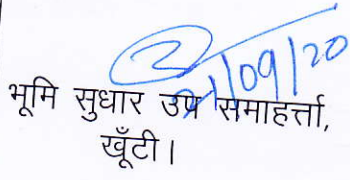 21/09/20
भूमि सुधार उप समाहर्त्ता,
खूँटी।